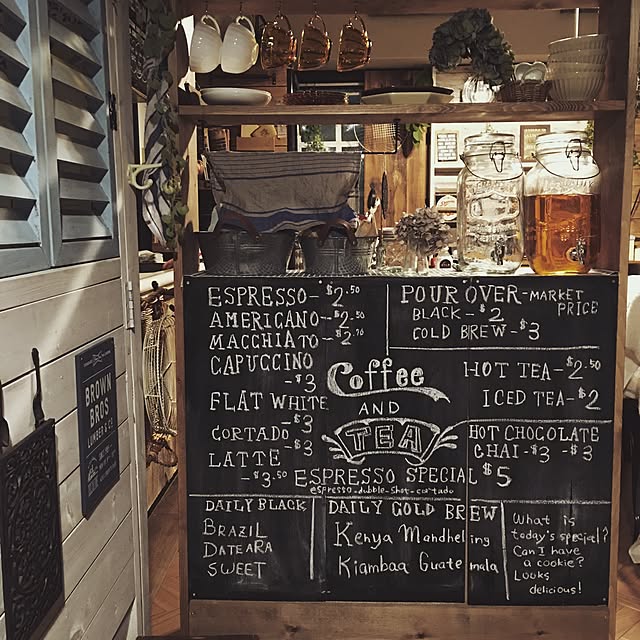 ESPRESSO-$2.50
AMERICANO-$2.50
MACCHIATO-$2.70
CAPUCCINO
-$3
FLAT WHITE
-$3
CORTADO
-$3
LATTE
-$3.50
POUR OVER-MARKET PRICE
BLACK-$2
COLD BREW-$3
Coffee
AND
TEA
HOT TEA-$2.50
ICED TEA-$2
HOT CHOCOLATE
CHAI-$3 -$3
ESPRESSO SPECIAL $5
espresso-dubble-shot-cortado
DAILY BLACK
BRAZIL
DATEARA
SWEET
DAILY COLD BREW
Kenya Mandheling
Kiambaa Guatemala
What is
today's special?
Can I have
a cookie?
Looks
delicious!
BROWN
BROS
LUMBER & CO